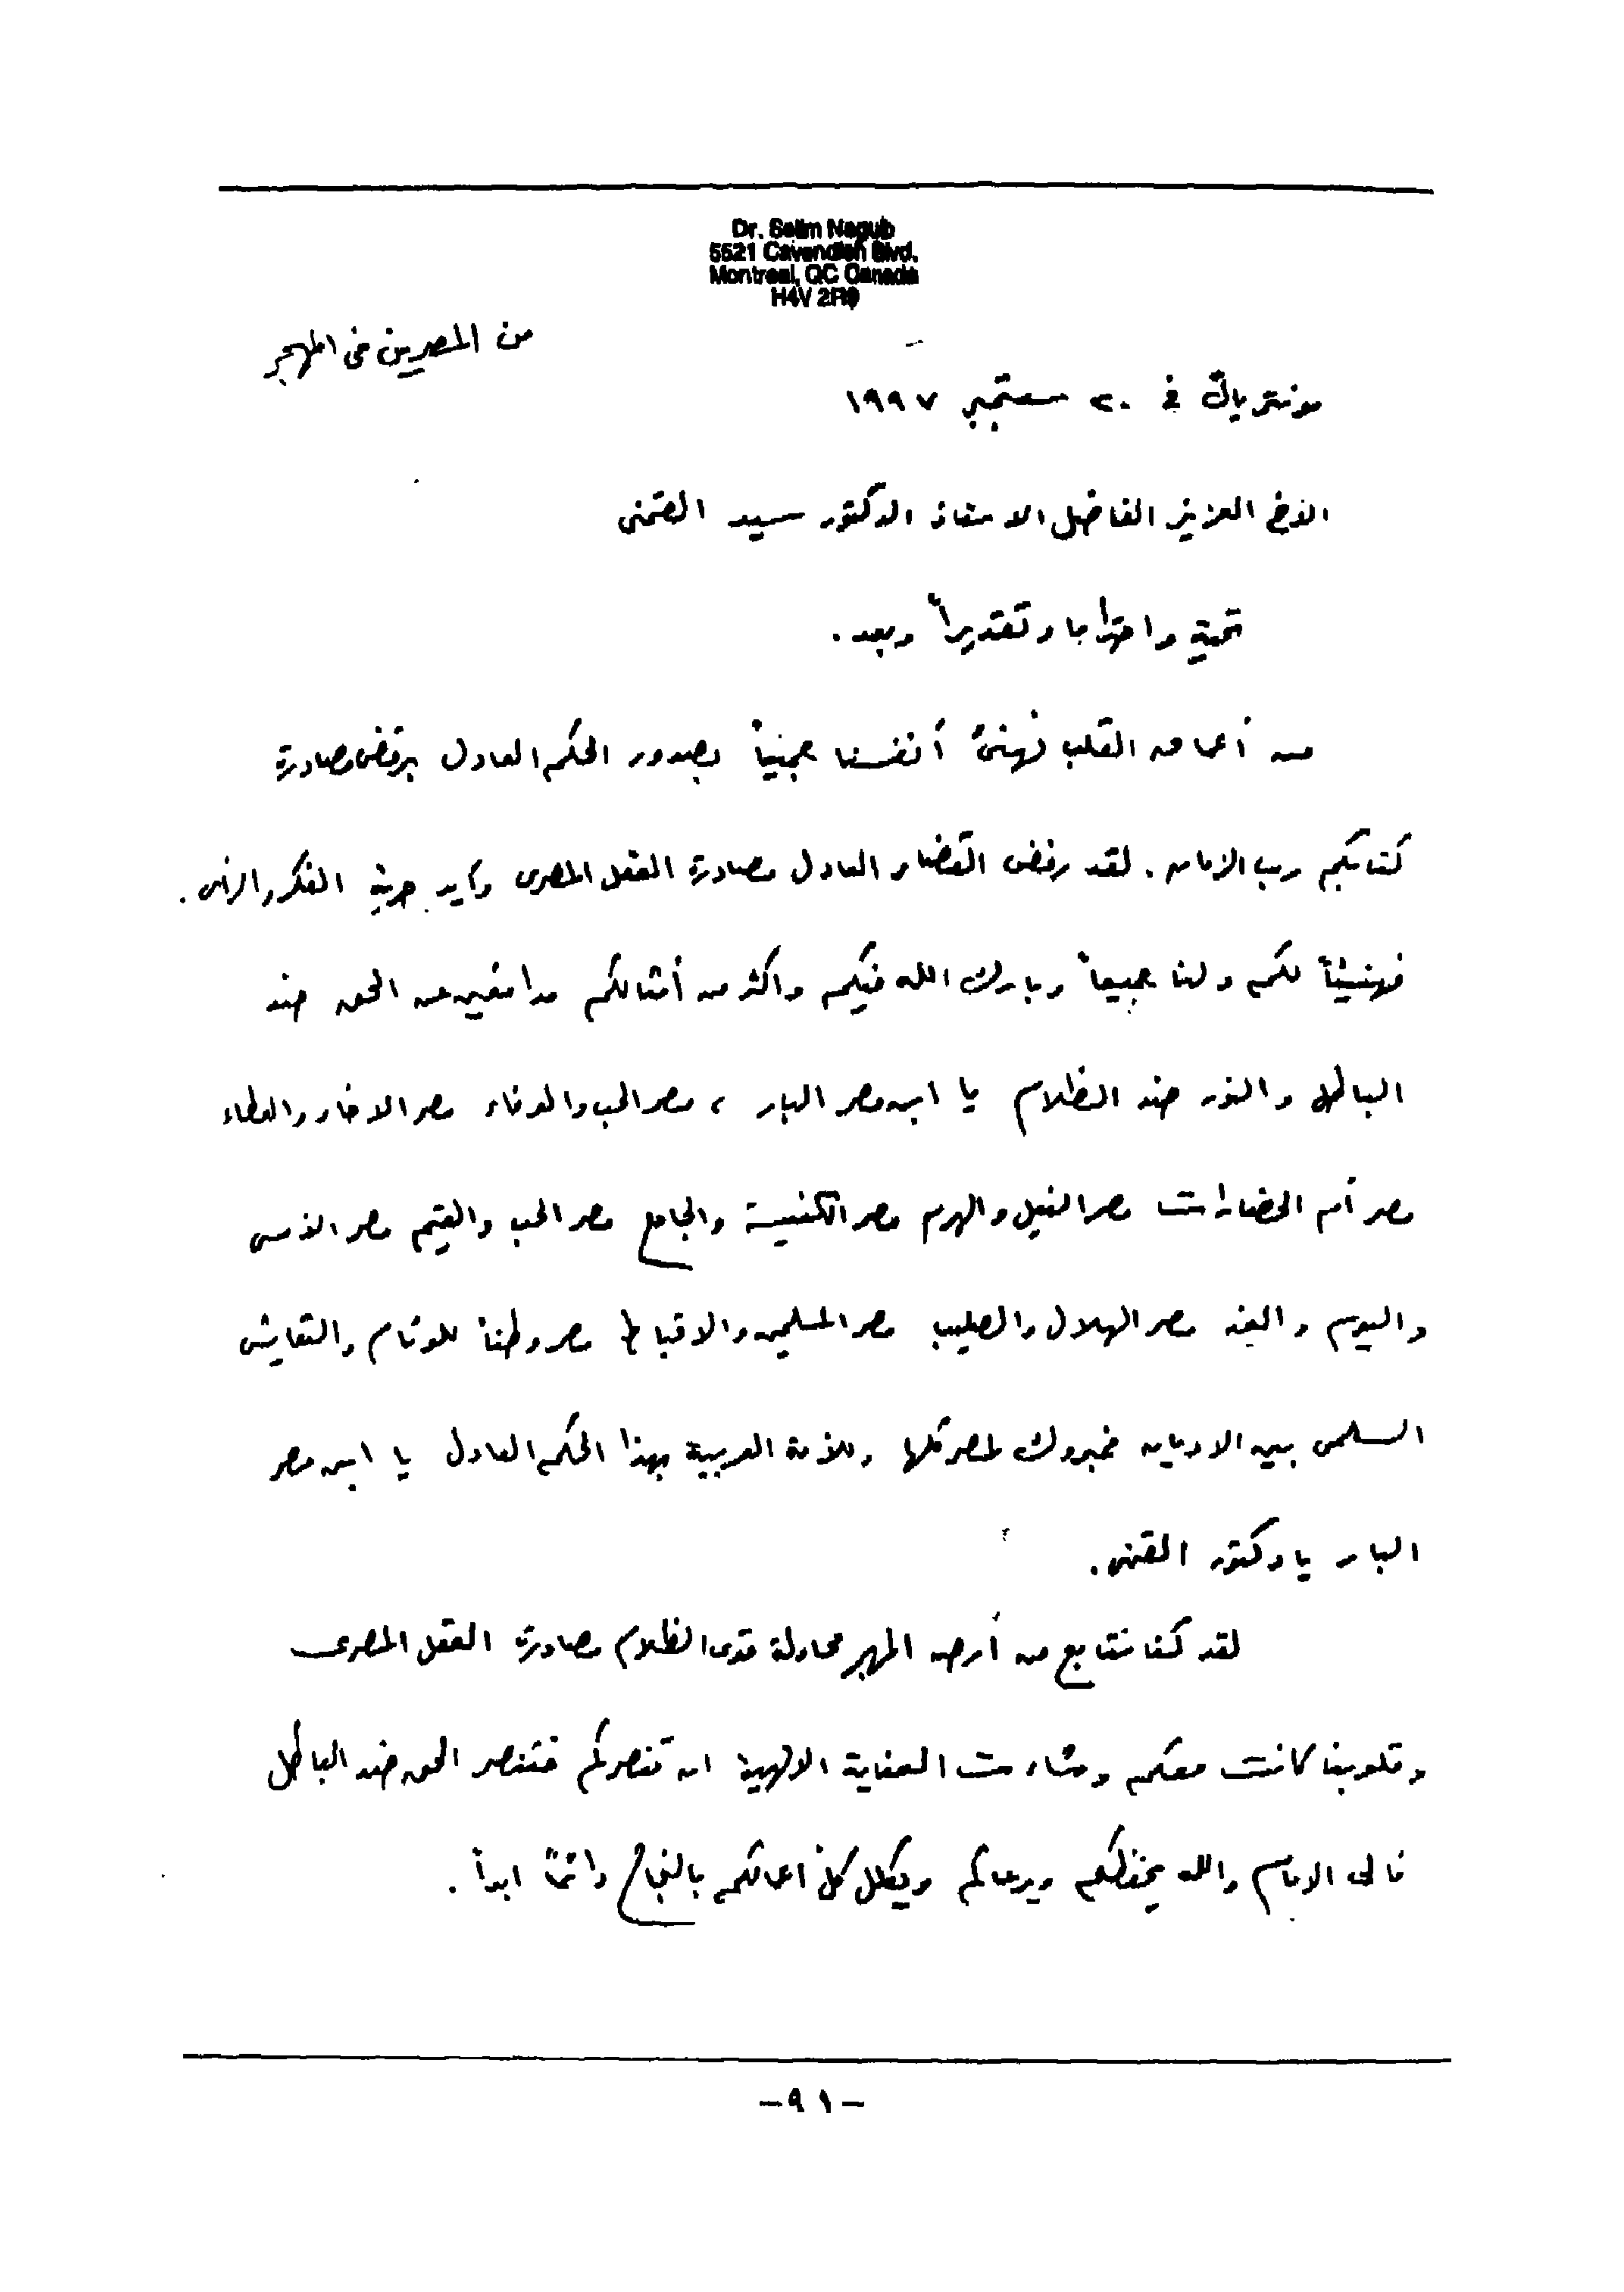 Dr. Selim Naguib
5521 Cavendish Blvd.
Montreal, QC Canada
H4V 2R9
من المصريين فى المهجر
مونتريال في ٢٠ سبتمبر ١٩٩٧
الاخ العزيز الفاضل الاستاذ الدكتور سيد القمنى
تحية واحتراما وتقديراً وبعد .
من أعماق القلب نهنئ أنفسنا جميعاً بصدور الحكم العادل برفض مصادرة
كتابكم رب الزمان . لقد رفض القضاء العادل مصادرة العقل المصرى وأيد حرية الفكر والرأى .
فهنيئاً لكم ولنا جميعاً وبارك الله فيكم واكثر من أمثالكم مدافعين عن الحق ضد
الباطل والنور ضد الظلام يا ابن مصر البار ، مصر الحب والوفاء مصر الاخاء والعطاء
مصر أم الحضارات مصر النيل والهرم مصر الكنيسة والجامع مصر الحب والقيم مصر الامس
واليوم والغد مصر الهلال والصليب مصر المسلمين والاقباط مصر وطناً للوئام والتعايش
السلمى بين الاديان فمبروك لمصر كلها وللأمة العربية بهذا الحكم العادل يا ابن مصر
البار يا دكتور القمنى .
لقد كنا نتابع من أرض المهجر محاولة قوى الظلام مصادرة العقل المصرى
وقلوبنا كانت معكم وشاءت العناية الالهية ان تنصركم فتنصر الحق ضد الباطل
فالى الامام والله يحفظكم ويرعاكم ويكلل كل أعمالكم بالنجاح دائماً ابداً .
-٩١-